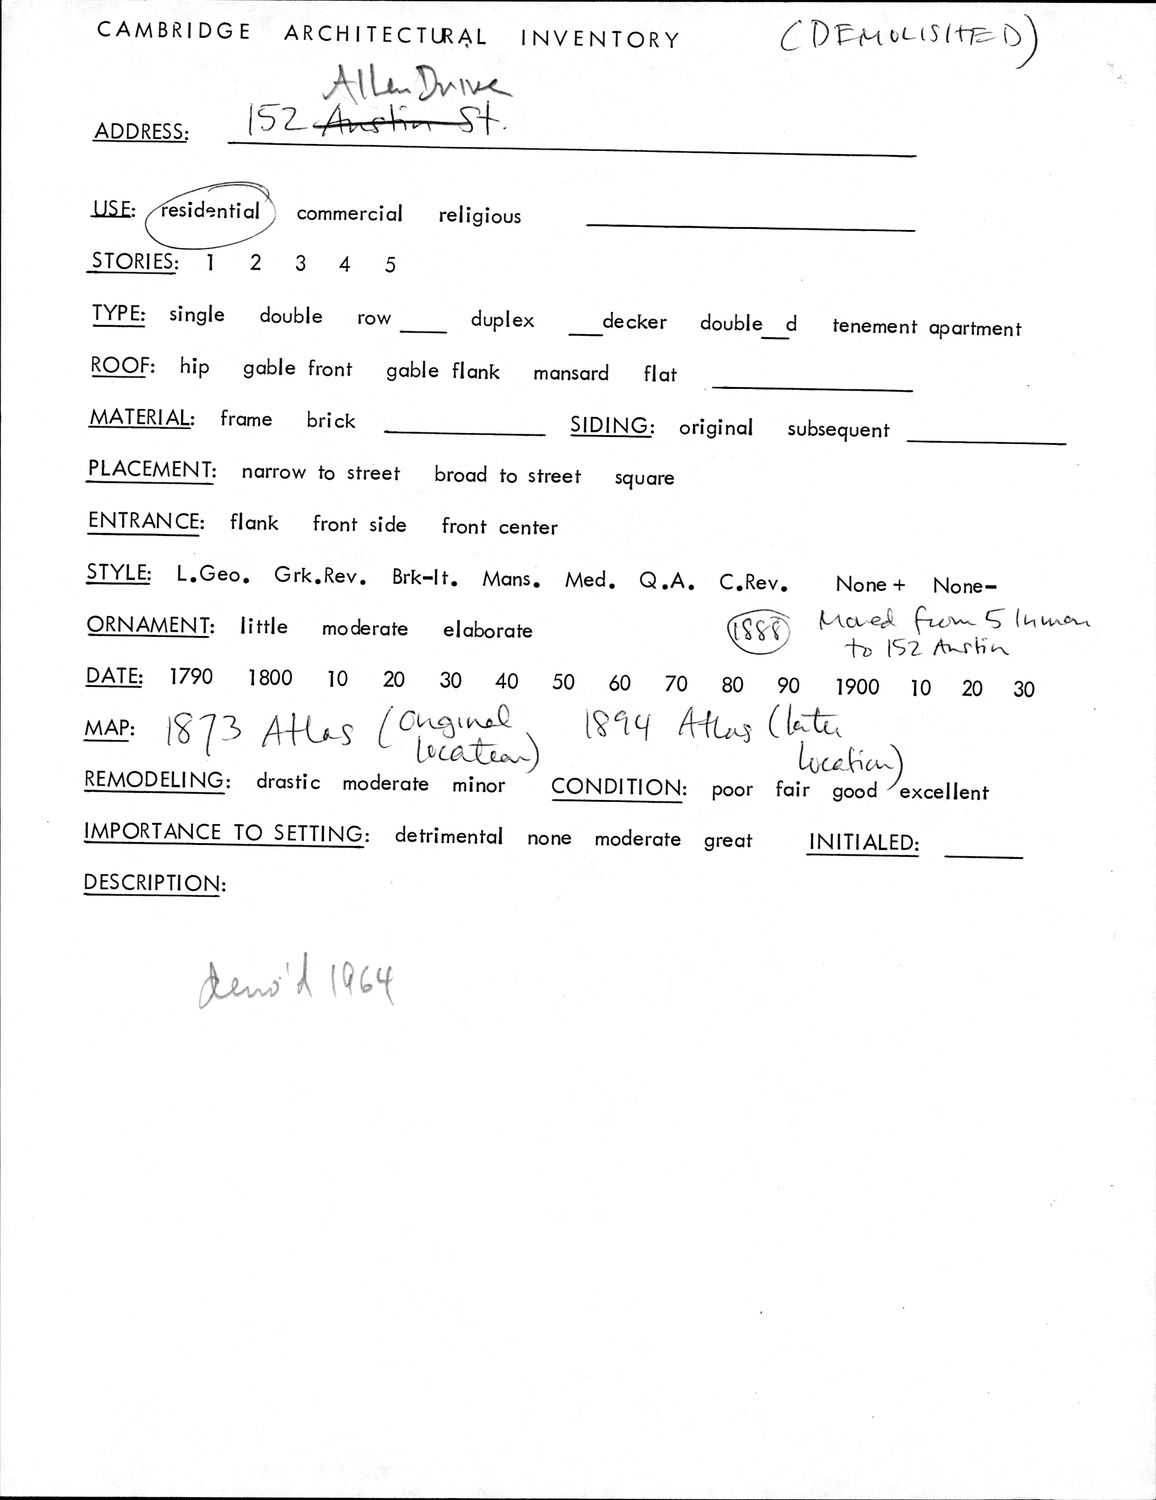 CAMBRIDGE ARCHITECTURAL INVENTORY (DEMOLISHED)
Allen Drive
ADDRESS: 152 Austin St.
USE: residential commercial religious
STORIES: 1 2 3 4 5
TYPE: single double row ____ duplex ___decker double__d tenement apartment
ROOF: hip gable front gable flank mansard flat
MATERIAL: frame brick ____ SIDING: original subsequent ____
PLACEMENT: narrow to street broad to street square
ENTRANCE: flank front side front center
STYLE: L.Geo. Grk.Rev. Brk-It. Mans. Med. Q.A. C.Rev. None+ None-
ORNAMENT: little moderate elaborate 1888 Moved from 5 Inman
to 152 Austin
DATE: 1790 1800 10 20 30 40 50 60 70 80 90 1900 10 20 30
MAP: 1873 Atlas (original 1894 Atlas (later
location) location)
REMODELING: drastic moderate minor CONDITION: poor fair good excellent
IMPORTANCE TO SETTING: detrimental none moderate great INITIALED: ____
DESCRIPTION:
demo'd 1964